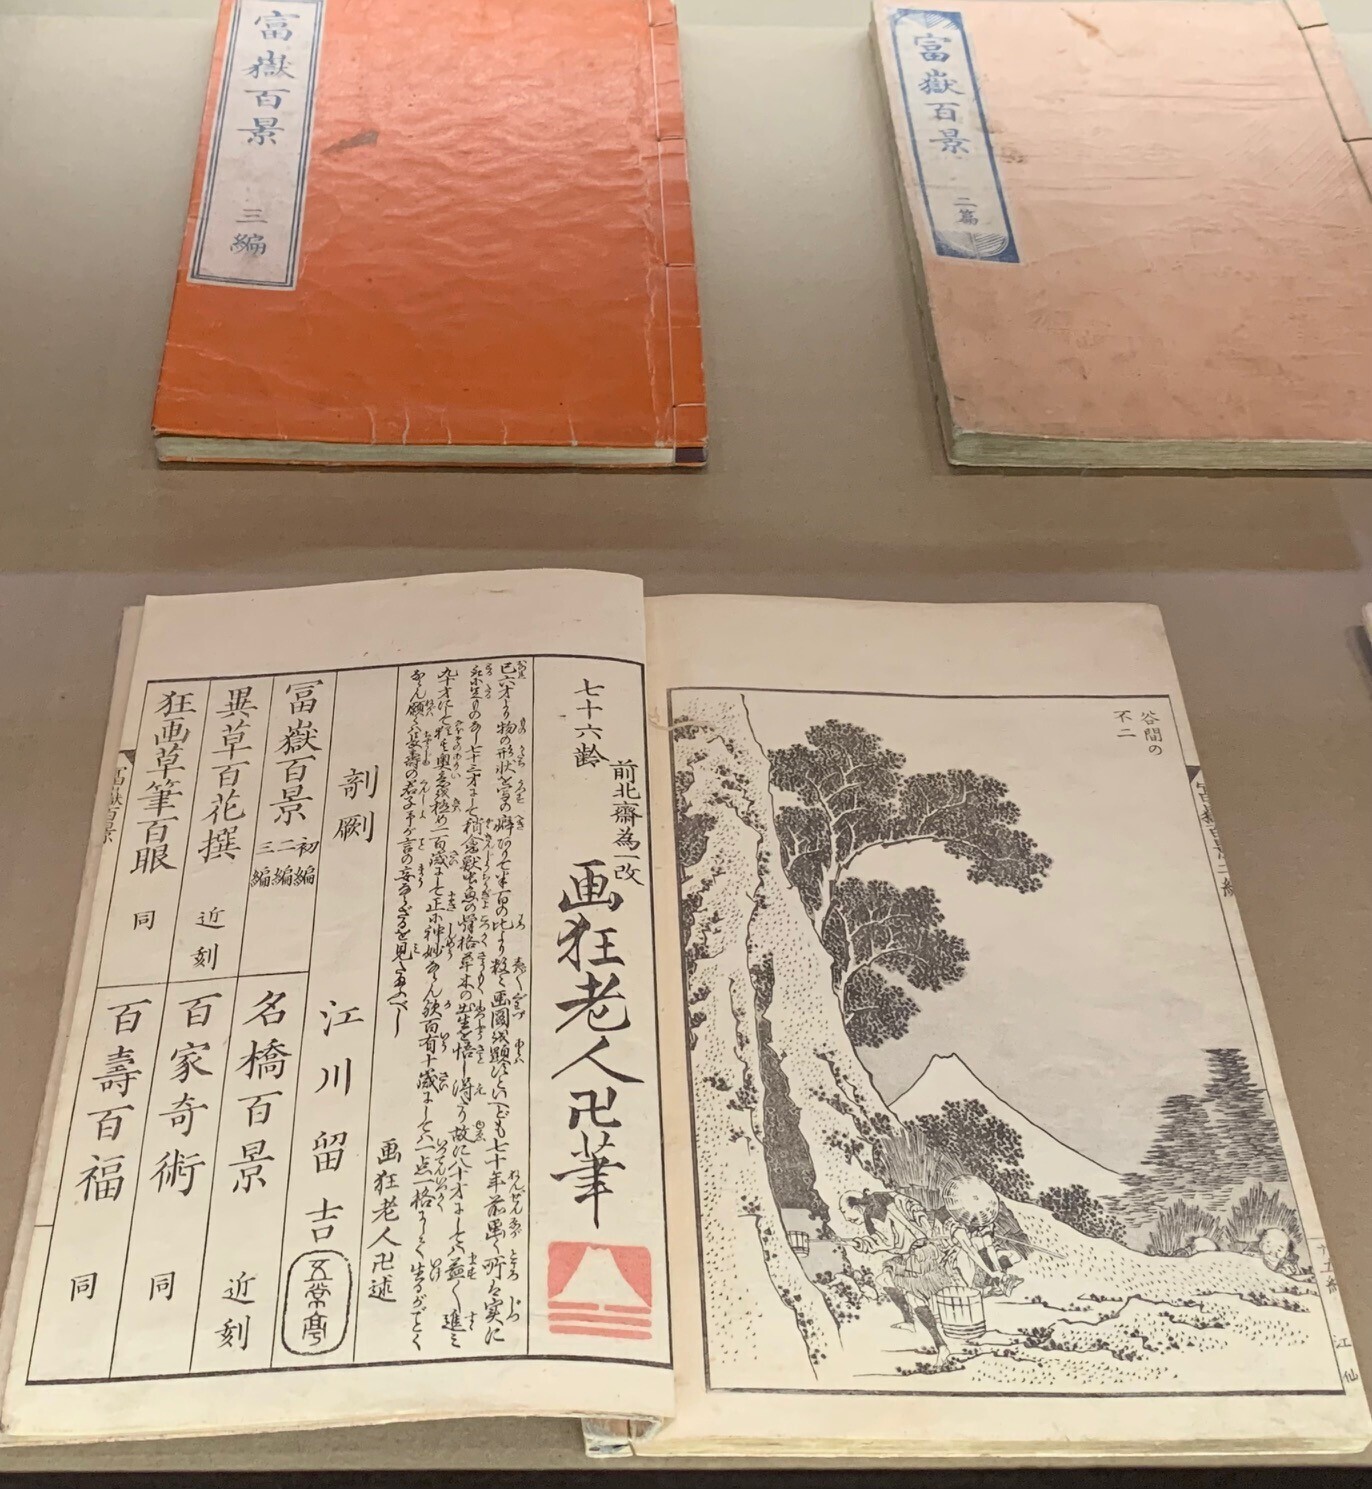 富嶽百景 三編
富嶽百景 二篇
谷間の
不二
江仙
七十六齢
前北斎為一改
画狂老人卍筆
己六才より物の形状を写の癖ありて半百の比より数々画図を顕すといへども七十年前画く所は実に
取に足ものなし七十三才にして稍禽獣虫魚の骨格草木の出生を悟し得たり故に八十才にしては益々進み
九十才にして猶其奥意を極め一百歳にして正に神妙ならん歟百有十歳にしては一点一格にして生るがごとく
ならん願くは長寿の君子予が言の妄ならざるを見たまふべし
画狂老人卍述
剞劂
江川留吉
五常亭
冨嶽百景 初編 二編 三編
名橋百景 近刻
異草百花撰 近刻
百家奇術 同
狂画草筆百眼 同
百壽百福 同
富嶽百景